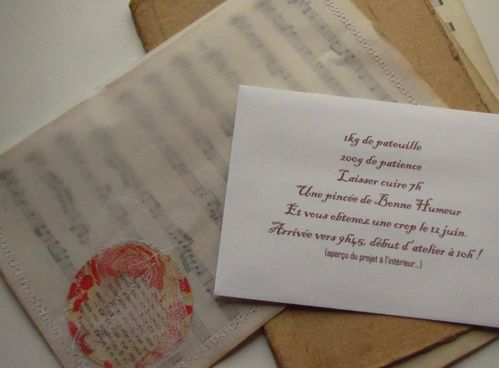 1kg de patouille
200g de patience
Laisser cuire 7h
Une pincée de Bonne Humeur
Et vous obtenez une crop le 12 juin.
Arrivée vers 9h45, début d'atelier à 10h !
(aperçu du projet à l'intérieur...)